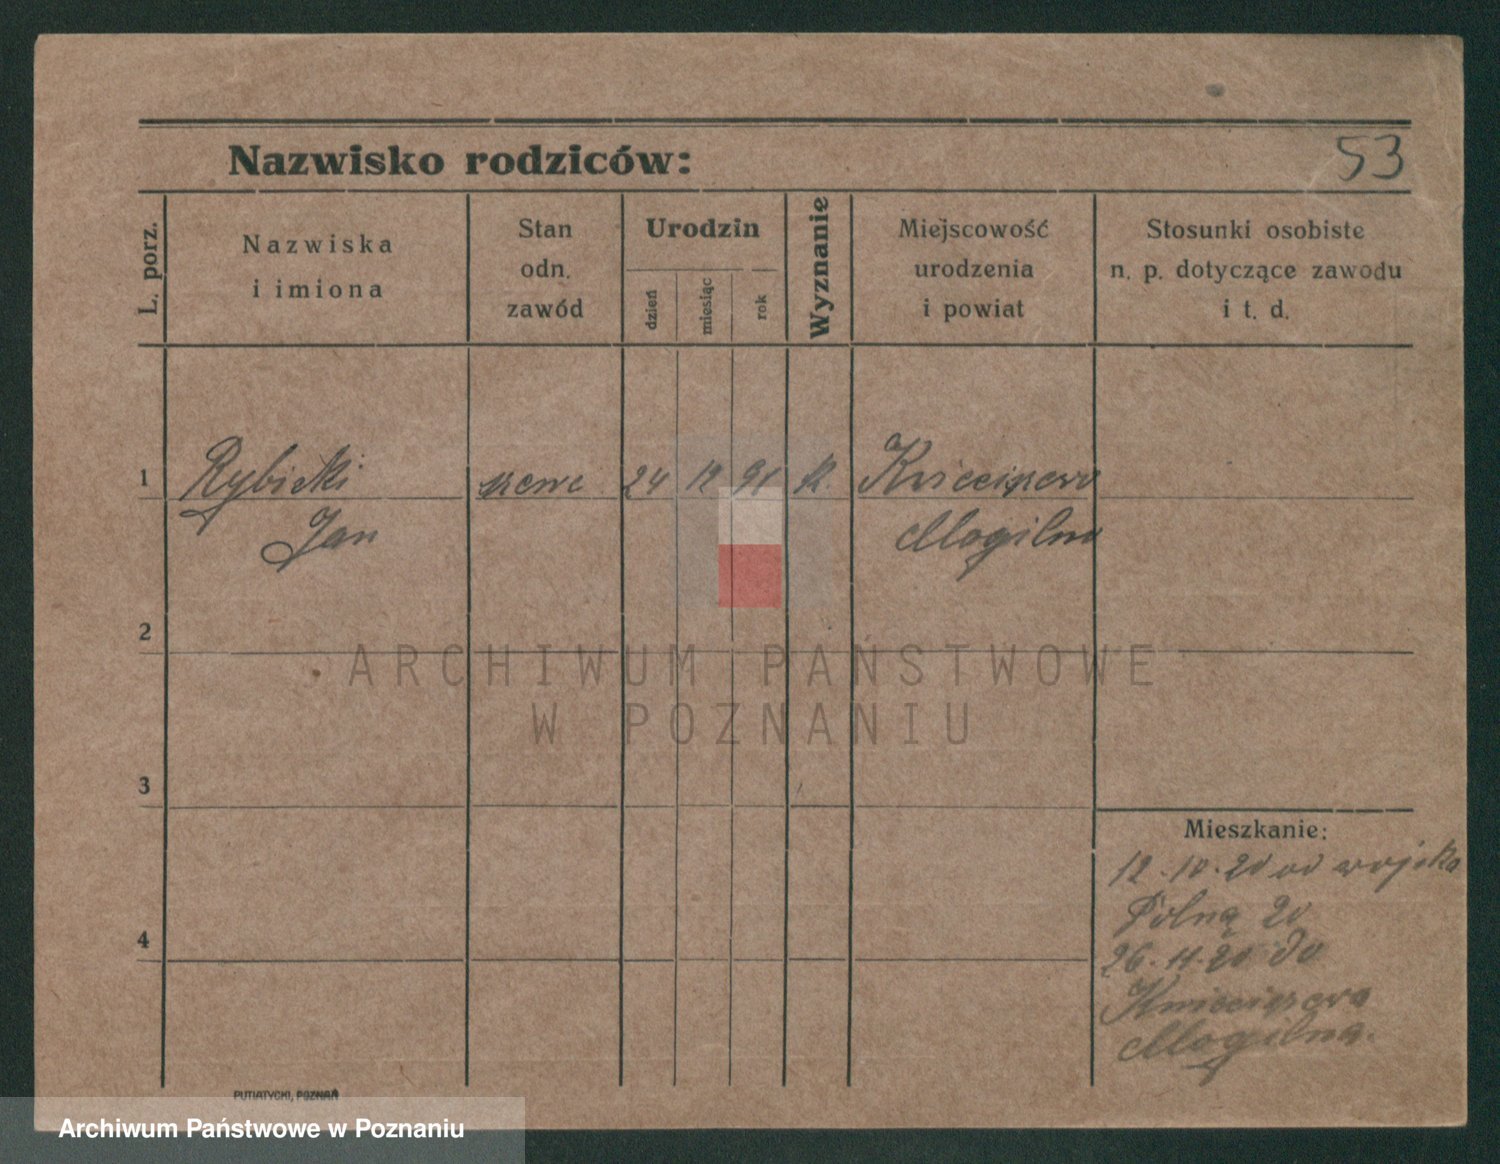 53
Nazwisko rodziców:
L. porz.
Nazwiska
i imiona
Stan
odn.
zawód
Urodzin
dzień
miesiąc
rok
Wyznanie
Miejscowość
urodzenia
i powiat
Stosunki osobiste
n. p. dotyczące zawodu
i t. d.
1 Rybicki 24 12 91 k. Kwieciszewo
Jan Mogilno
2
ARCHIWUM PAŃSTWOWE
W POZNANIU
3
Mieszkanie:
12.10.20 od wojska
Polna 20
4
26.11.20 do
Kwieciszewa
Mogilna.
PUTIATYCKI, POZNAŃ
Archiwum Państwowe w Poznaniu